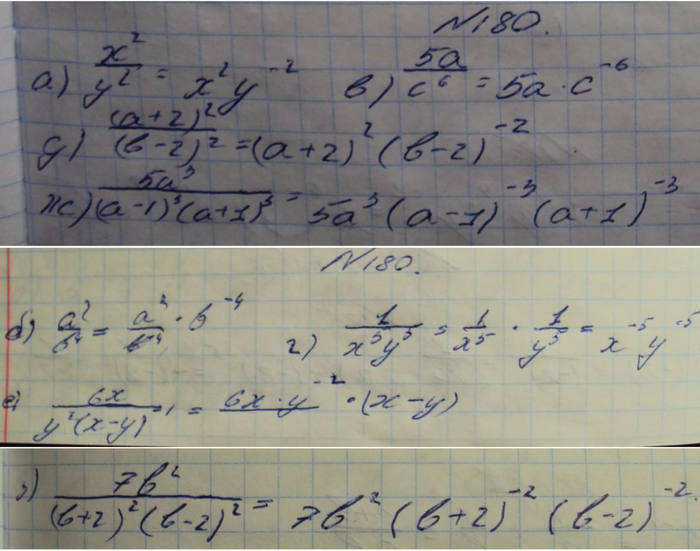 №180.
а) x²/y² = x²y⁻² в) 5a/c⁶ = 5a·c⁻⁶
д) (a+2)²/(b-2)² = (a+2)²(b-2)⁻²
ж) 5a³/(a-1)³(a+1)³ = 5a³(a-1)⁻³(a+1)⁻³
№180.
б) a²/b⁴ = a²/b⁴ · b⁻⁴ г) 1/x⁵y⁵ = 1/x⁵ · 1/y⁵ = x⁻⁵y⁻⁵
е) 6x/y²(x-y)⁻¹ = 6x·y⁻²·(x-y)
7b²/(b+2)²(b-2)² = 7b²(b+2)⁻²(b-2)⁻².